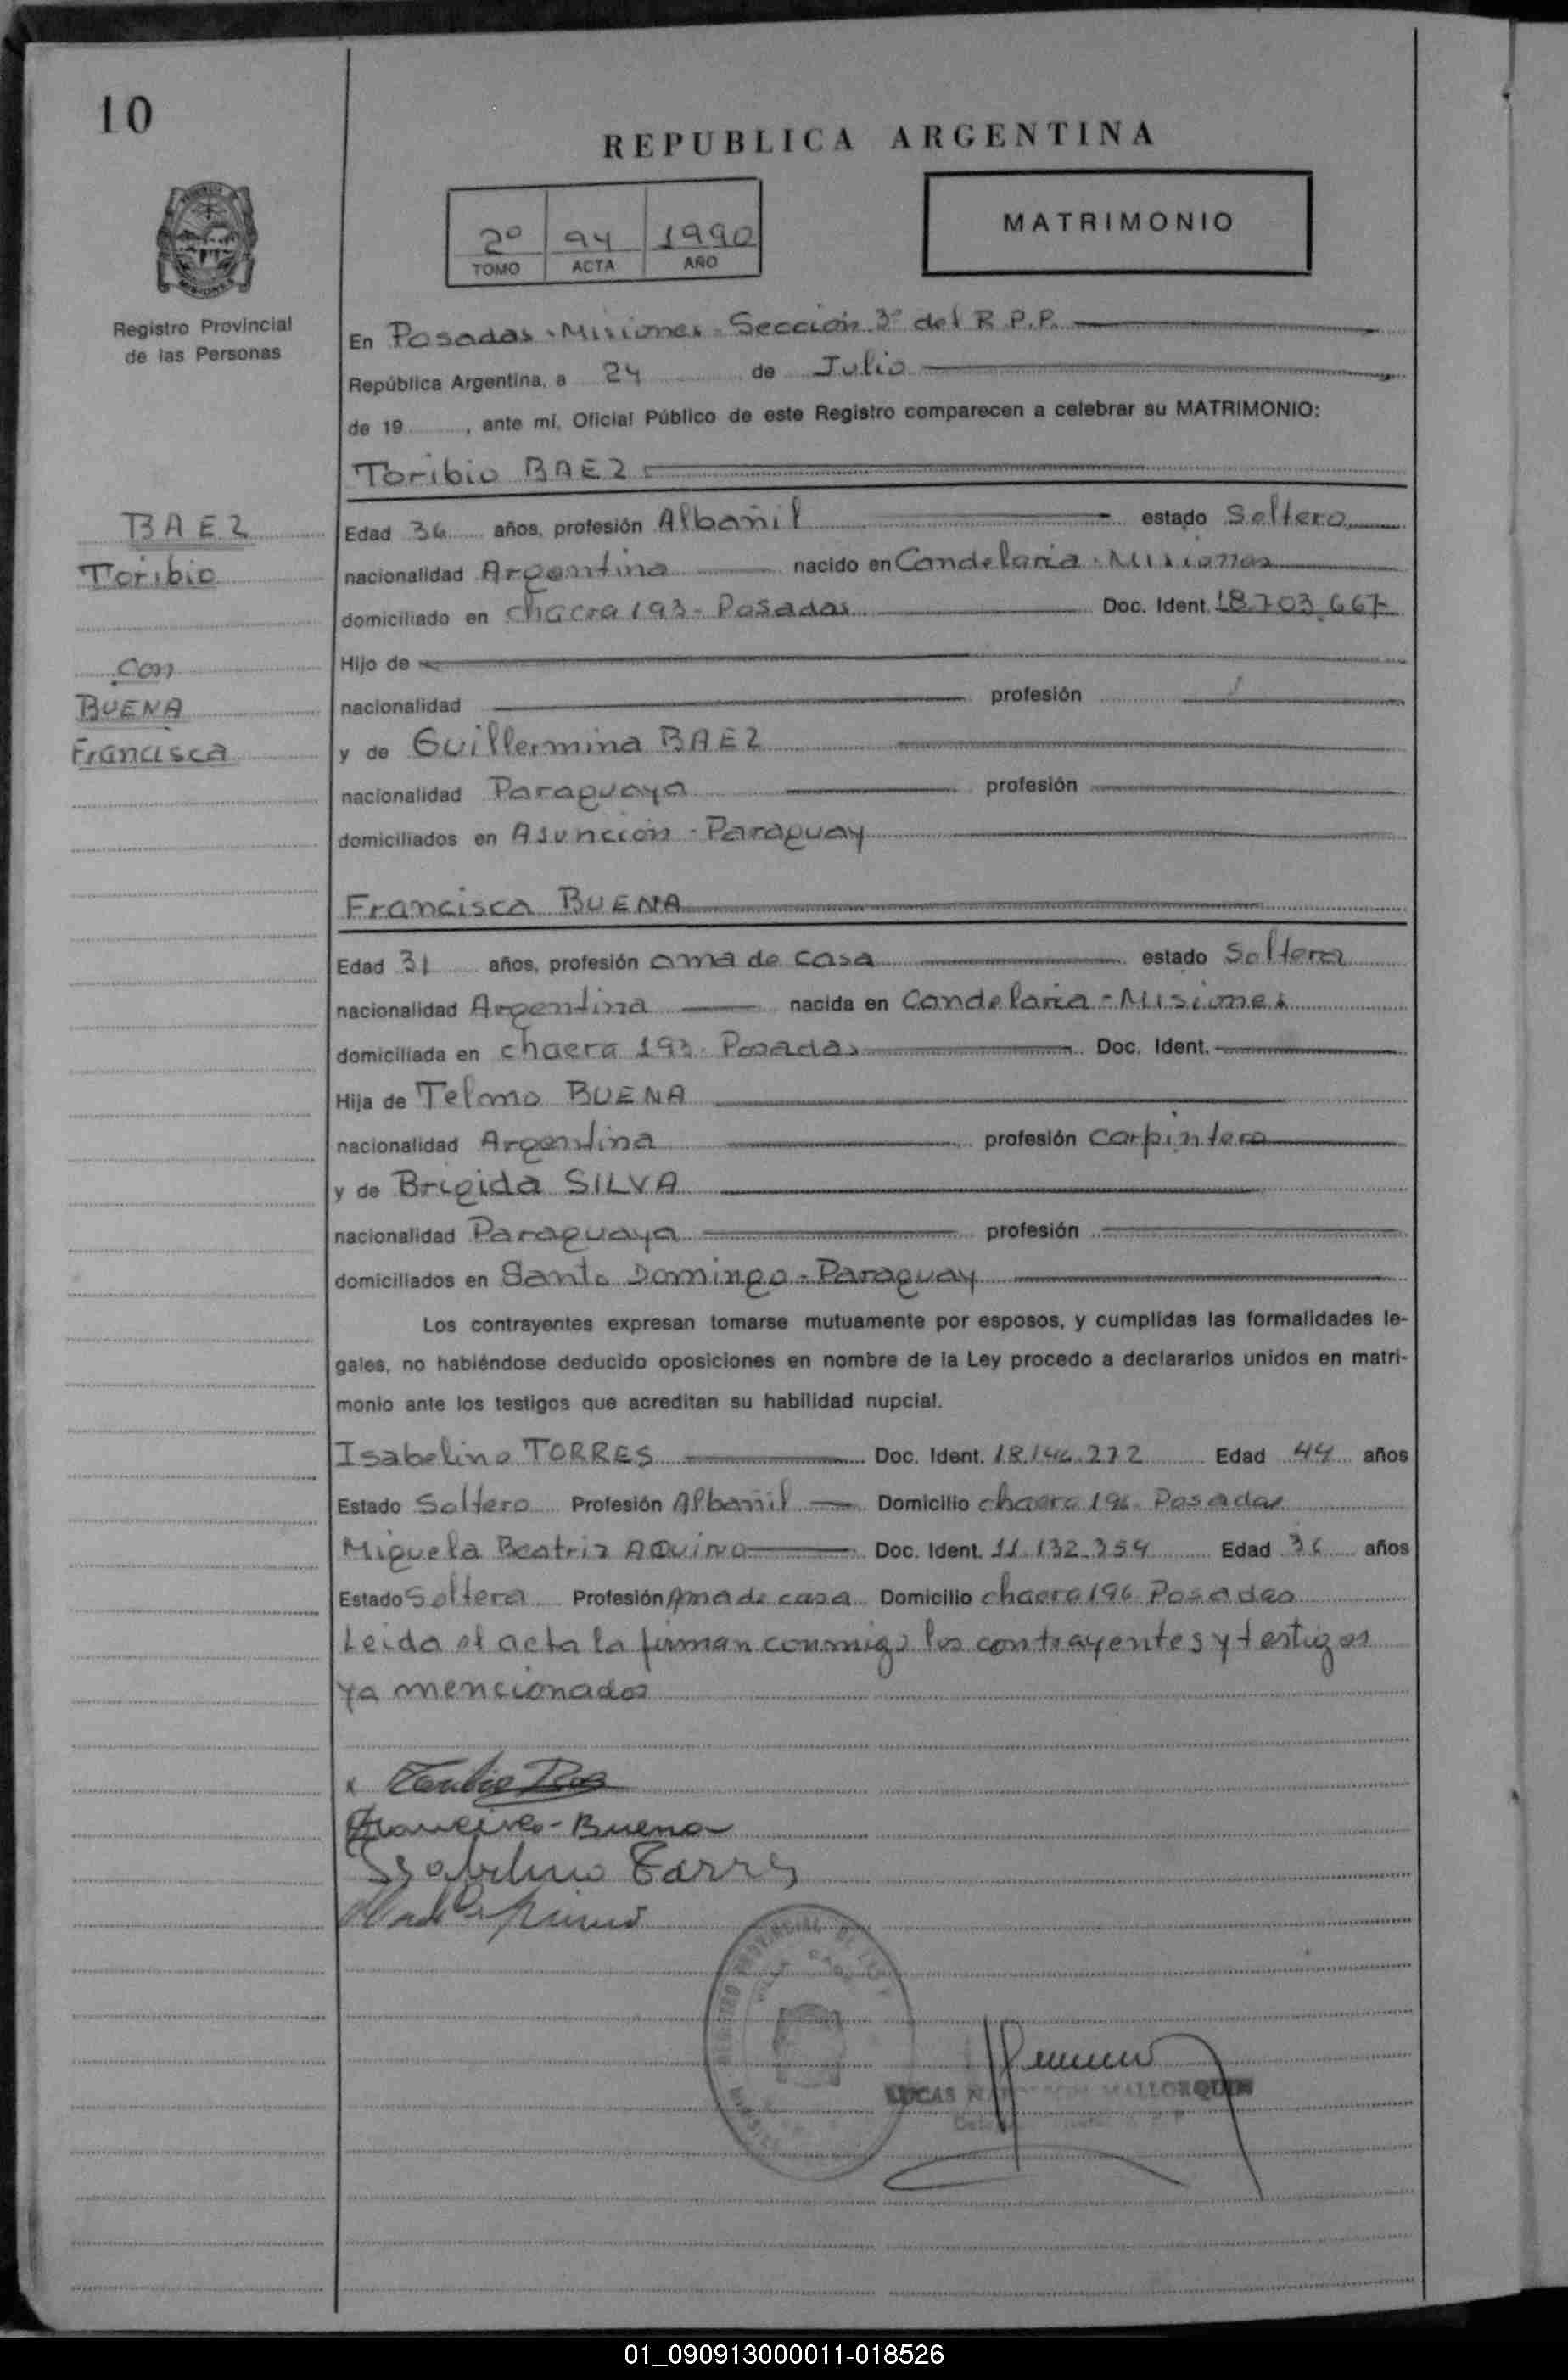 10
REPUBLICA ARGENTINA
2º 94 1990
TOMO ACTA AÑO
MATRIMONIO
Registro Provincial
de las Personas
En Posadas - Misiones - Sección 3º del R.P.P.
República Argentina, a 24 de Julio
de 19 , ante mí, Oficial Público de este Registro comparecen a celebrar su MATRIMONIO:
Toribio BAEZ
BAEZ
Toribio
con
BUENA
Francisca
Edad 36 años, profesión Albañil estado Soltero
nacionalidad Argentina nacido en Candelaria - Misiones
domiciliado en chacra 193 - Posadas Doc. Ident. 18.703.667
Hijo de
nacionalidad profesión
y de Guillermina BAEZ
nacionalidad Paraguaya profesión
domiciliados en Asunción - Paraguay
Francisca BUENA
Edad 31 años, profesión ama de casa estado Soltera
nacionalidad Argentina nacida en Candelaria - Misiones
domiciliada en chacra 193 - Posadas Doc. Ident.
Hija de Telmo BUENA
nacionalidad Argentina profesión carpintero
y de Brigida SILVA
nacionalidad Paraguaya profesión
domiciliados en Santo Domingo - Paraguay
Los contrayentes expresan tomarse mutuamente por esposos, y cumplidas las formalidades le-
gales, no habiéndose deducido oposiciones en nombre de la Ley procedo a declararlos unidos en matri-
monio ante los testigos que acreditan su habilidad nupcial.
Isabelino TORRES Doc. Ident. 18.146.272 Edad 44 años
Estado Soltero Profesión Albañil Domicilio chacra 196 Posadas
Miguela Beatriz AQUINO Doc. Ident. 11.132.354 Edad 36 años
Estado Soltera Profesión Ama de casa Domicilio chacra 196 Posadas
Leida el acta la firman conmigo los contrayentes y testigos
ya mencionados
x Toribio Baez
Francisca - Buena
Isabelino Torres
REGISTRO PROVINCIAL DE LAS
LUCAS MALLORQUIN
01_090913000011-018526